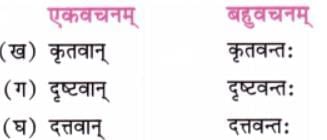 एकवचनम् बहुवचनम्
(ख) कृतवान् कृतवन्तः
(ग) दृष्टवान् दृष्टवन्तः
(घ) दत्तवान् दत्तवन्तः